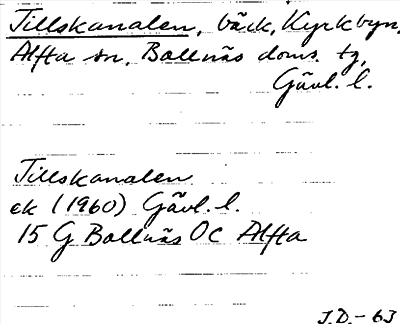 Tillskanalen, bäck, Kyrkbyn,
Alfta sn, Bollnäs doms. tg,
Gävl. l.
Tillskanalen
ek (1960) Gävl. l.
15 G Bollnäs OC Alfta
J.D. - 63